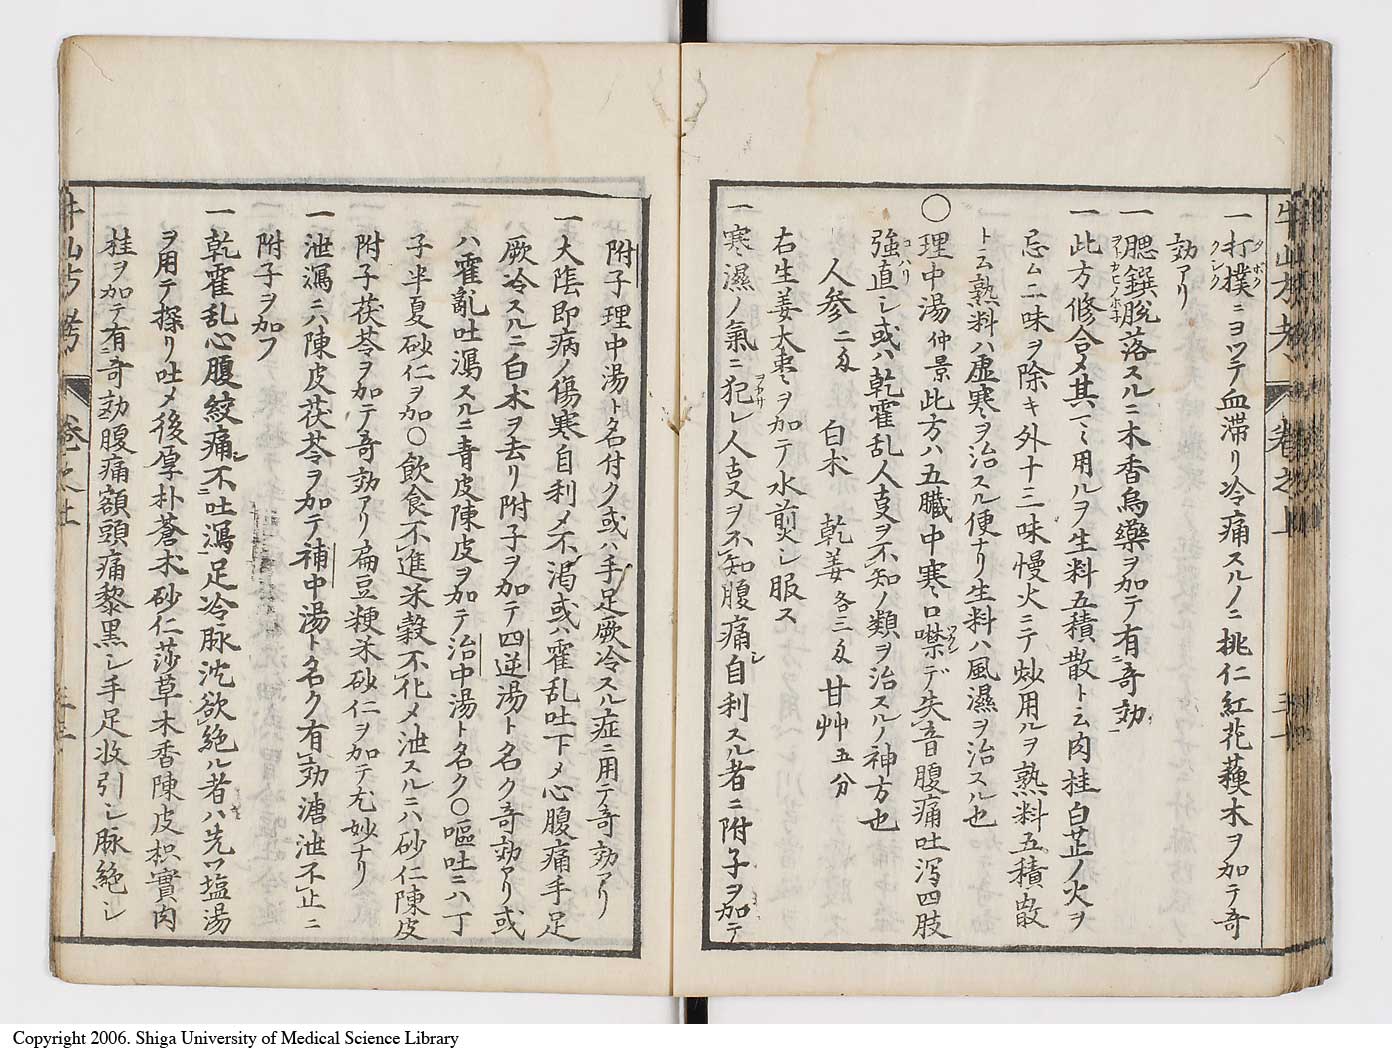 一打撲ニヨツテ血滞リ冷痛スルノニ桃仁紅花蘓木ヲ加テ奇
効アリ
一腮鐉脱落スルニ木香烏藥ヲ加テ有奇効
一此方修合メ其ミ用ルヲ生料五積散ト云肉桂白芷ノ火ヲ
忌ム二味ヲ除キ外十三味慢火ニテ炒用ルヲ熟料五積散
ト云熟料ハ虚寒ヲ治スル便ナリ生料ハ風濕ヲ治スル也
〇理中湯 仲景此方ハ五臓中寒口噤デ失音腹痛吐瀉四肢
強直シ或ハ乾霍乱人叓ヲ不知ノ類ヲ治スルノ神方也
人参二匁 白朮 乾姜各三匁 甘艸五分
右生姜大棗ヲ加テ水煎シ服ス
一寒濕ノ氣ニ犯レ人叓ヲ不知腹痛シ自利スル者ニ附子ヲ加テ
牛山方考 巻之上
附子理中湯ト名付ク或ハ手足厥冷スル症ニ用テ奇効アリ
一大陰即病ノ傷寒自利メ不渇或ハ霍乱吐下メ心腹痛手足
厥冷スルニ白朮ヲ去リ附子ヲ加テ四逆湯ト名ク奇効アリ或
ハ霍亂吐瀉スルニ青皮陳皮ヲ加テ治中湯ト名ク〇嘔吐ニハ丁
子半夏砂仁ヲ加〇飲食不進米穀不化メ泄スルニハ砂仁陳皮
附子茯苓ヲ加テ奇効アリ扁豆粳米砂仁ヲ加テ尤妙ナリ
一泄瀉ニ六陳皮茯苓ヲ加テ補中湯ト名ク有効溏泄不止ニ
附子ヲ加フ
一乾霍乱心腹絞痛シ不吐瀉足冷脉沈欲絶ル者ハ先ツ塩湯
ヲ用テ探リ吐メ後厚朴蒼朮砂仁莎草木香陳皮枳實肉
桂ヲ加テ有奇効腹痛額頭痛黎黒シ手足收引シ脉絶シ
牛山方考 巻之上
Copyright 2006. Shiga University of Medical Science Library